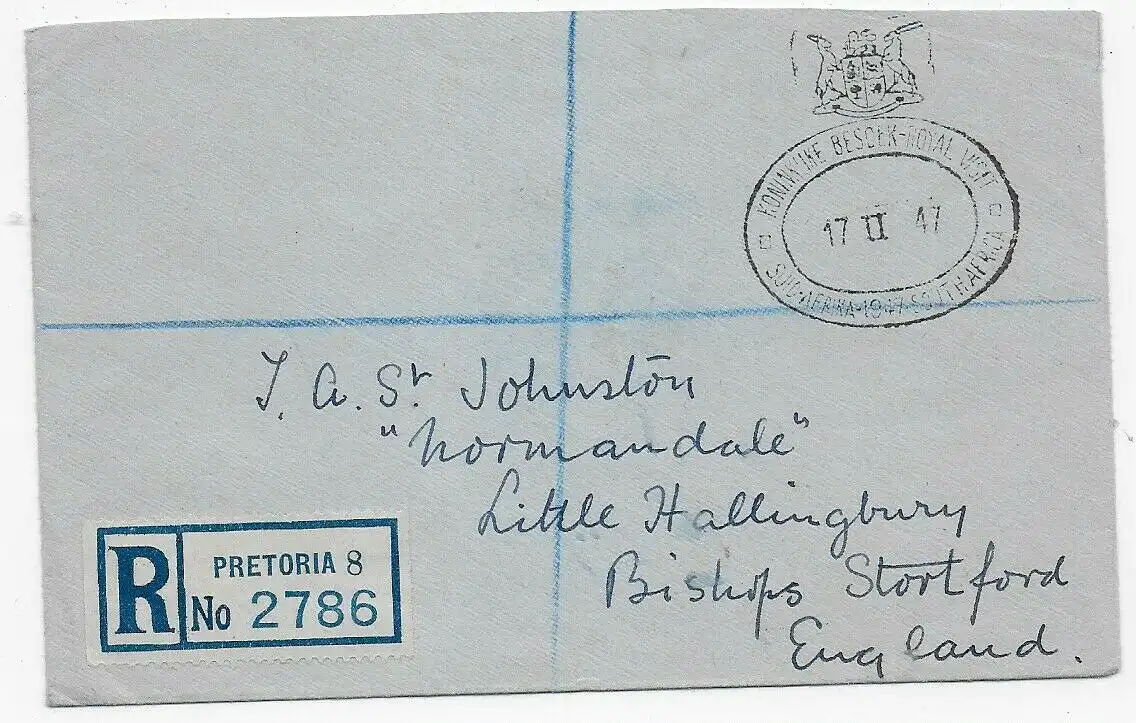 KONINKLIKE BESOEK-ROYAL VISIT
17 II 47
SUID-AFRIKA-1947-SOUTH AFRICA
J. A. St Johnston
"Normandale"
Little Hallingbury
Bishops Stortford
England.
R
PRETORIA 8
No 2786